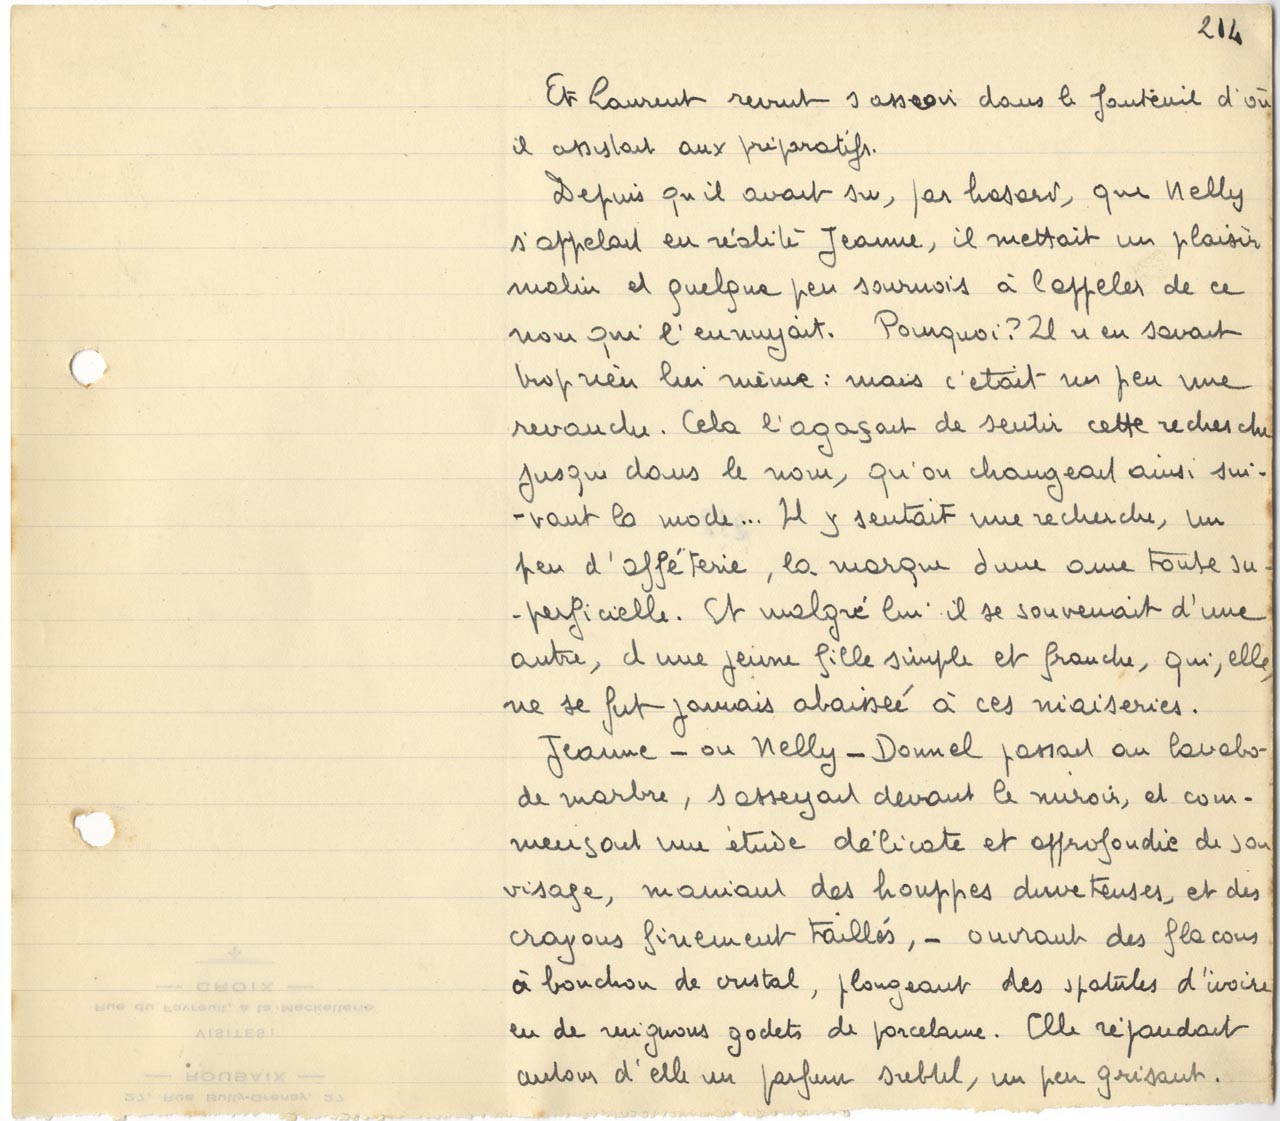 214
Et Laurent revint s'asseoir dans le fauteuil d'où
il assistait aux préparatifs.
Depuis qu'il avait su, par hasard, que Nelly
s'appelait en réalité Jeanne, il mettait un plaisir
malin et quelque peu sournois à l'appeler de ce
nom qui l'ennuyait. Pourquoi? Il n'en savait
trop rien lui même : mais c'était un peu une
revanche. Cela l'agaçait de sentir cette recherche
jusque dans le nom, qu'on changeait ainsi sui-
-vant la mode... Il y sentait une recherche, un
peu d'afféterie, la marque d'une ame toute su-
-perficielle. Et malgré lui il se souvenait d'une
autre, d'une jeune fille simple et franche, qui, elle,
ne se fut jamais abaissée à ces niaiseries.
Jeanne - ou Nelly - Donnel passait au lavabo
de marbre, s'asseyait devant le miroir, et com-
mençait une étude délicate et approfondie de son
visage, maniant des houppes duveteuses, et des
crayons finement taillés, - ouvrant des flacons
à bouchon de cristal, plongeant des spatules d'ivoire
en de mignons godets de porcelaine. Elle répandait
autour d'elle un parfum subtil, un peu grisant.
— CROIX —
Rue du Favreuil, à la Mackellerie
VISITES:
— ROUBAIX —
27, Rue Bully-Grenay, 27